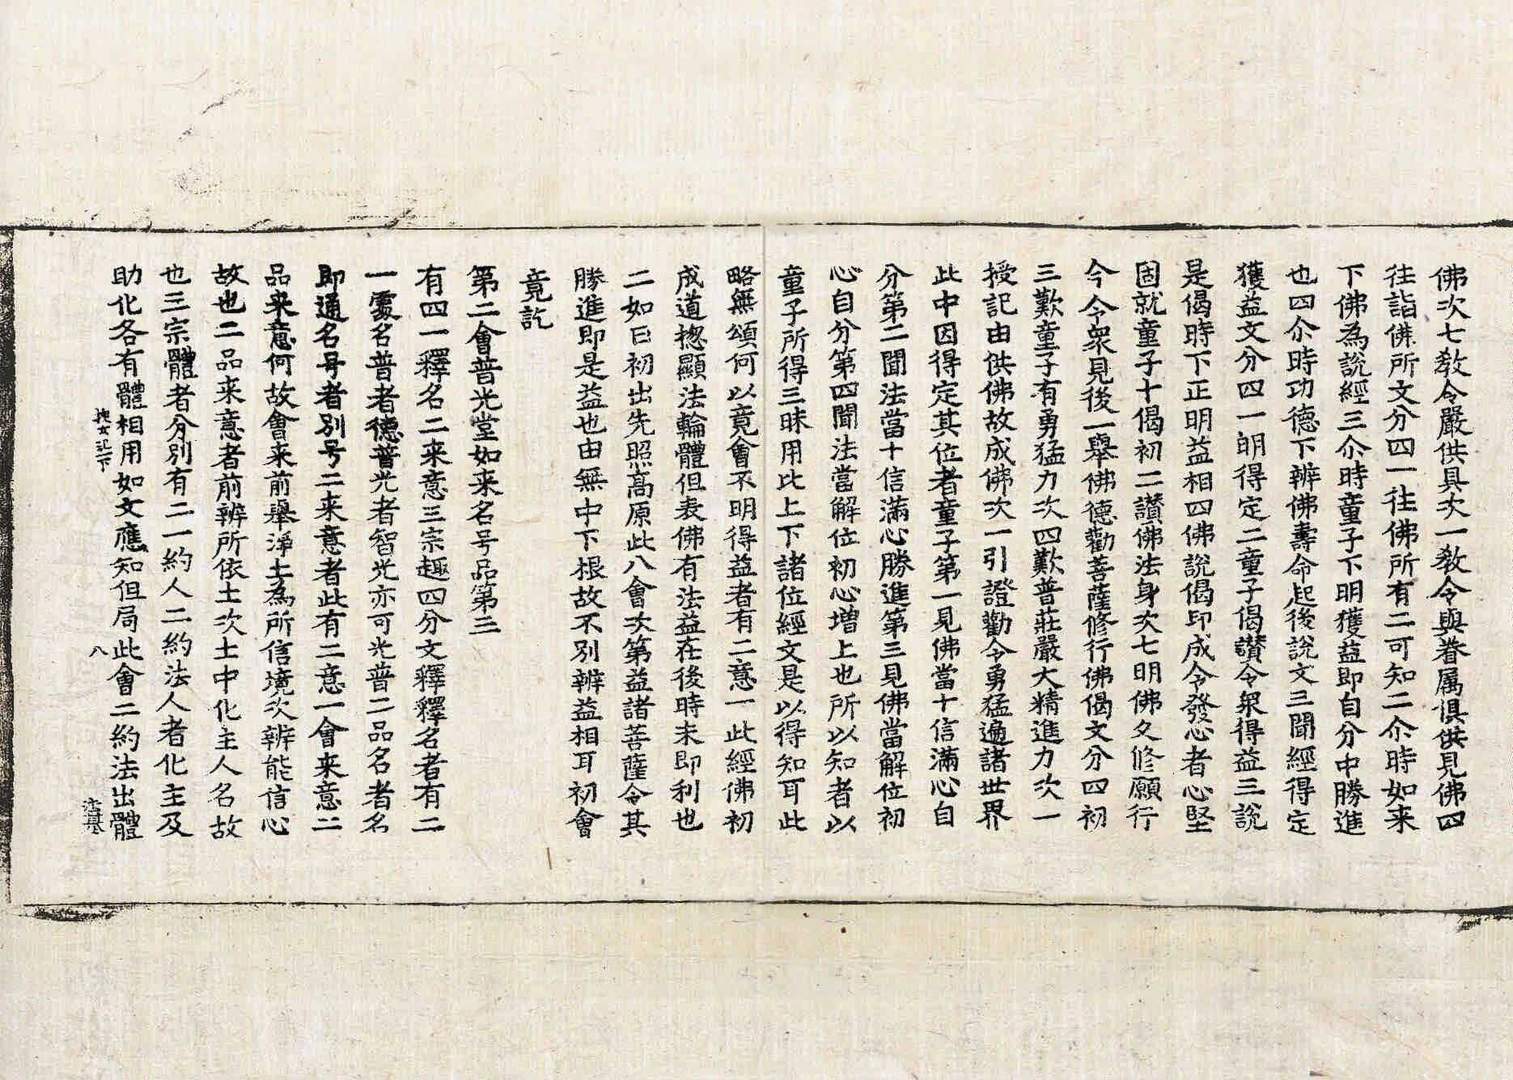 佛次七教令嚴供具次一教令與眷属俱供見佛四
往詣佛所文分四一往佛所有二可知二尒時如来
下佛為說經三尒時童子下明獲益即自分中勝進
也四尒時功德下辨佛壽命起後說文三聞經得定
獲益文分四一明得定二童子偈讃令衆得益三說
是偈時下正明益相四佛說偈印成令發心者心堅
固就童子十偈初二讃佛法身次七明佛久修願行
今令衆見後一舉佛德勸菩薩修行佛偈文分四初
三歎童子有勇猛力次四歎普莊嚴大精進力次一
授記由供佛故成佛次一引證勸令勇猛遍諸世界
此中因得定其位者童子第一見佛當十信滿心自
分第二聞法當十信滿心勝進第三見佛當解位初
心自分第四聞法當解位初心增上也所以知者以
童子所得三昧用比上下諸位經文是以得知耳此
略無頌何以竟會不明得益者有二意一此經佛初
成道揔顯法輪體但表佛有法益在後時未即利也
二如日初出先照高原此八會次第益諸菩薩令其
勝進即是益也由無中下根故不別辨益相耳初會
竟訖
第二會普光堂如来名号品第三
有四一釋名二来意三宗趣四分文釋釋名者有二
一處名普者德普光者智光亦可光普二品名者名
即通名号者别号二来意者此有二意一會来意二
品来意何故會来前舉淨土為所信境次辨能信心
故也二品来意者前辨所依土次土中化主人名故
也三宗體者分别有二一約人二約法人者化主及
助化各有體相用如文應知但局此會二約法出體
八